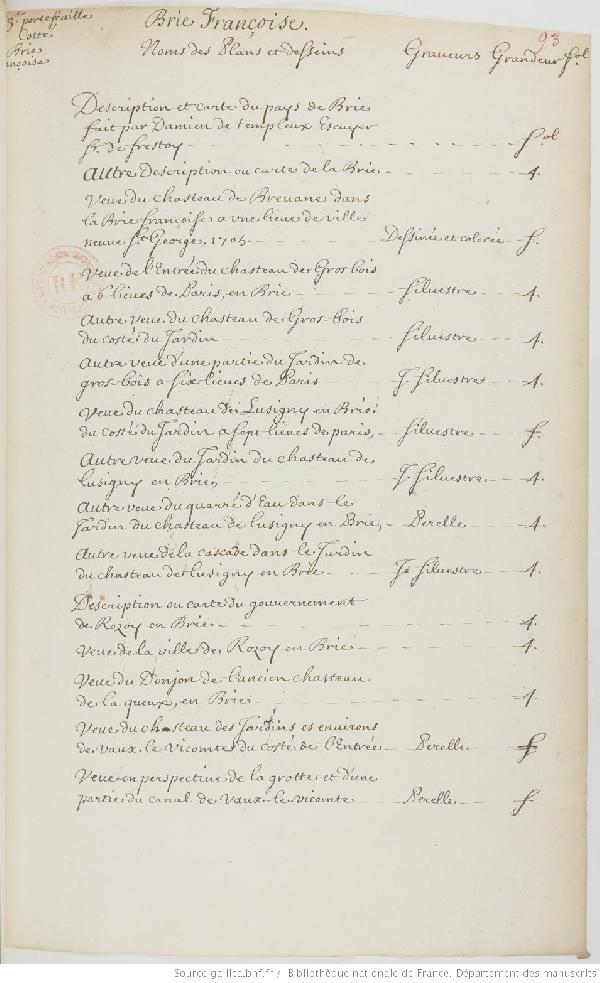 3.e portefeuille
Cotté
Brie
ançoise
Brie Françoise.
93
Noms des Plans et desseins Graveurs Grandeur fol
Description et carte du pays de Brie
fait par Damien de templeux Escuyer
Sr. de frestoy fol
Autre Description ou carte de la Brie 4.
Veue du chasteau de Brevane dans
la Brie françoise a vne lieue de ville
neuve St George, 1705. Dessinée et colorée f.
Veue de l'Entrée du chasteau de Gros bois
a 6 lieues de Paris, en Brie Siluestre 4.
Autre veue du chasteau de Gros-bois
du costé du Jardin Siluistre 4.
Autre veue d'une partie du Jardin de
gros-bois a six lieues de Paris I. Siluestre 4.
Veue du chasteau de Lusigny en Brie
du costé du Jardin a sept lieues de paris, Siluestre f.
Autre veue du Jardin du chasteau de
lusigny en Brie, I. Siluestre 4.
Autre veue du quarré d'Eau dans le
Jardin du chasteau de lusigny en Brie, Perelle 4.
Autre veue de la cascade dans le Jardin
du chasteau de lusigny en Brie I. Siluestre 4.
Description ou carte du gouvernement
de Rozoy en Brie 4.
Veue de la ville de Rozoy en Brie 4.
Veue du Donjon de l'ancien chasteau
de la queux, en Brie 4.
Veue du chasteau des Jardins et environs
de vaux le Vicomte du costé de l'Entrée Perelle f.
Veue en perspective de la grotte et d'une
partie du canal de vaux-le vicomte Perelle f.
Source gallica.bnf.fr / Bibliothèque nationale de France. Département des manuscrits